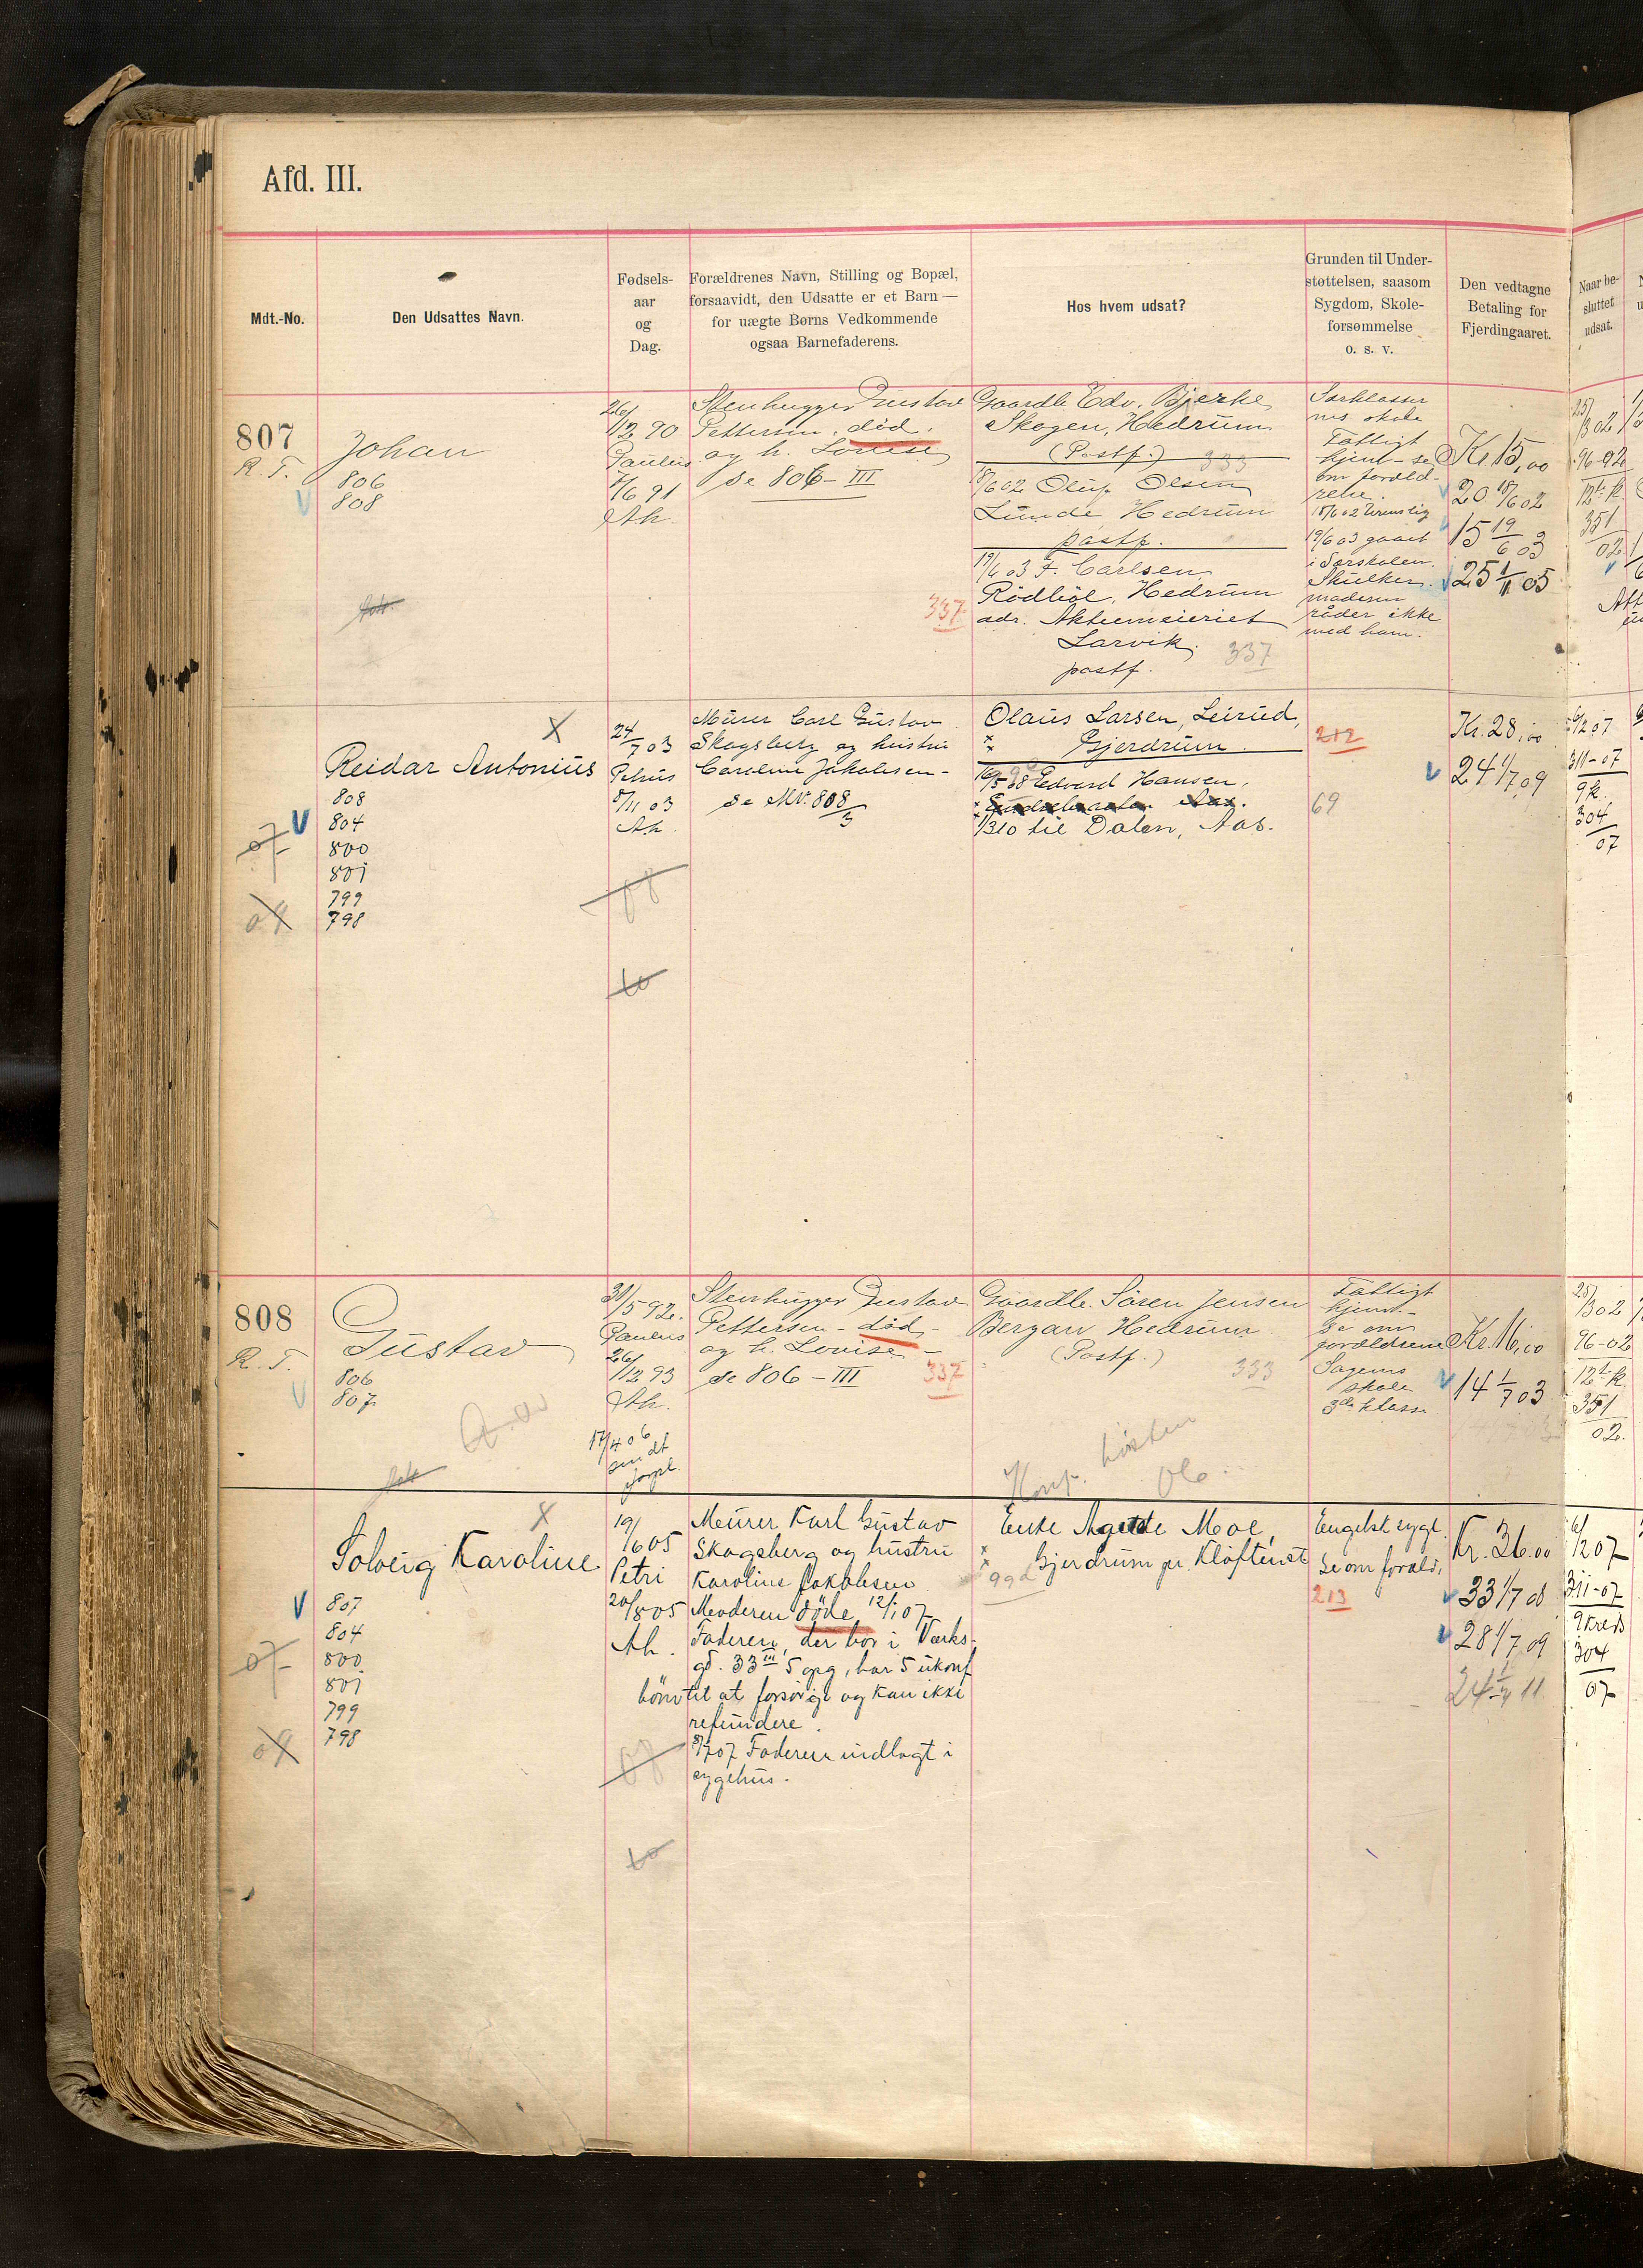 Afd. III.
Mdt.-No.
Den Udsattes Navn.
Fødsels-
aar
og
Dag.
Forældrenes Navn, Stilling og Bopæl,
forsaavidt, den Udsatte er et Barn —
for uægte Børns Vedkommende
ogsaa Barnefaderens.
Hos hvem udsat?
Grunden til Under-
støttelsen, saasom
Sygdom, Skole-
forsømmelse
o. s. v.
Den vedtagne
Betaling for
Fjerdingaaret.
Naar be-
sluttet
udsat.
807
R. T.
Johan
806
808
26/12 90
Paulus
7/6 91
Ak.
Stenhugger Gustav
Pettersen. død.
og h. Louise
se 806 - III
337
Gaardb. Edv. Bjerke
Skogen, Hedrum
(Postf.)
333
18/6 02 Oluf Olsen
Lunde Hedrum
postf.
19/6 03 F. Carlsen
Rödböl, Hedrum
adr. Aktiemeieriet
Larvik.
postf.
337
Særklasser
nes skole
Fattigt
hjem - se
om foreld-
rene.
18/6 02 Uvenslig
19/6 03 gaaet
i Særskolen.
Skulker.
moderen
råder ikke
med ham.
Kr. 15,00
20 18/6 02
15 19/6 03
25 1/11 05
25/3 02
96-02
12te k.
351
02
Reidar Antonius
808
804
800
801
799
798
24/7 03
Petrus
8/11 03
Ak.
Murer Carl Gustav
Skogsberg og hustru
Caroline Jakobsen -
se Mt. 808/3
Olaus Larsen, Leirud,
Gjerdrum.
16/5 08 Edvard Hansen,
Aas.
1/3 10 til Dalen, Aas.
212
69
Kr. 28,00
24 1/7 09
6/12 07
311-07
9 k.
304
07
808
R. T.
Gustav
806
807
31/5 92.
Paulus
26/12 93
Ak.
17/4 06
sendt
forpl.
Stenhugger Gustav
Pettersen - død -
og h. Louise -
se 806 - III
337
Gaardb. Sören Jensen
Bergan Hedrum
(Postf.)
333
Konf. høsten
06.
Fattigt
hjem -
se om
foreldrene
Sagens
skole
3de klasse
Kr. 16,00
14 1/7 03
25/3 02
96-02
12te k.
351
02.
Solveig Karoline
807
804
800
801
799
798
19/6 05
Petri
20/8 05
Ak.
Murer Karl Gustav
Skogsberg og hustru
Karoline Jakobsen
Moderen døde 12/1 07
Faderen, der bor i Værks-
gd. 33 III 5 opg, har 5 ukonf
börn til at forsörge og kan ikke
refundere.
8/7 07 Faderen indlagt i
sygehus.
Enke Agathe Moe,
Gjerdrum pr. Kløften st
99
Engelsk syge.
Se om foræld.
213
Kr. 36.00
33 1/7 08
28 1/7 09
24 11
6/12 07
311-07
9 kreds
304
07